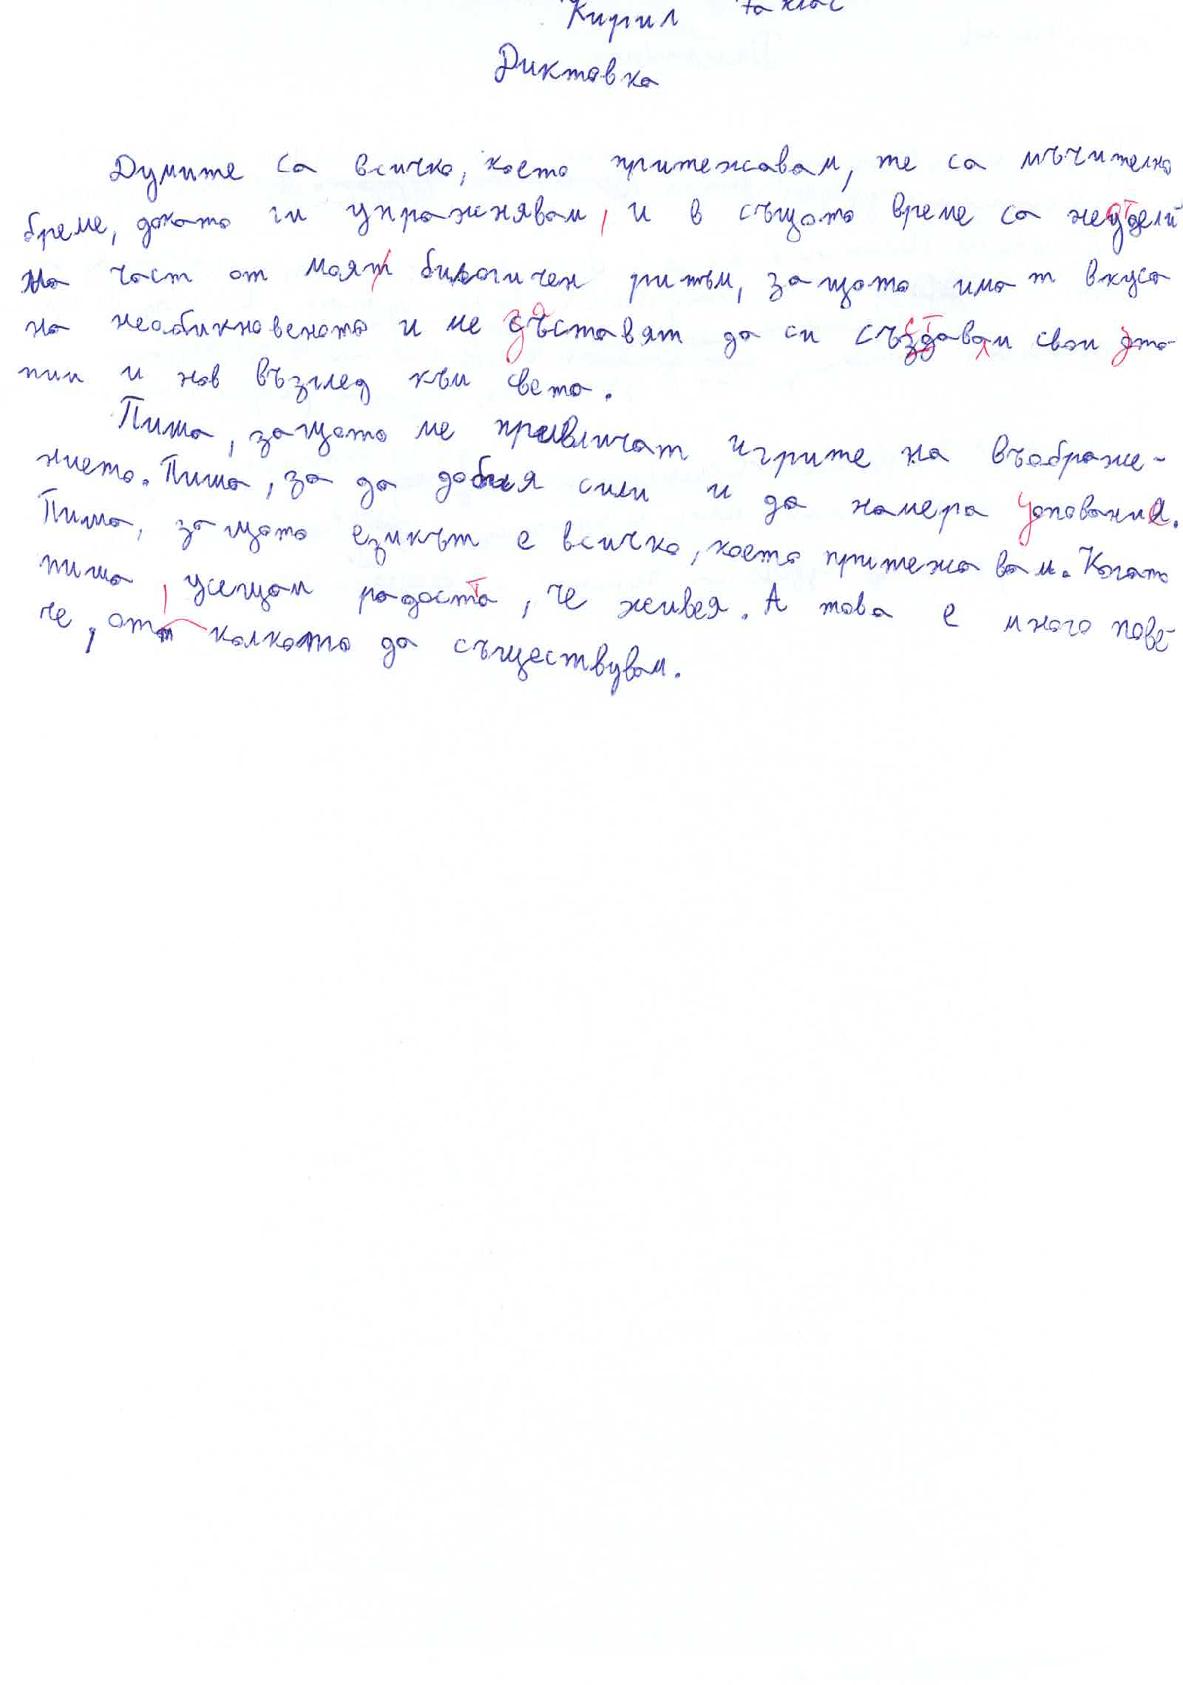 Кирил 7а клас
Диктовка
Думите са всичко, което притежавам, те са мъчително
бреме, докато ги упражнявам, и в същото време са неудели
ма част от моят биологичен ритъм, защото имат вкуса
на необикновеното и ме зъставят да си създавам свои уто-
пии и нов възглед към света.
Пиша, защото ме привличат игрите на въображе-
нието. Пиша, за да добия сили и да намеря упование.
Пиша, защото езикът е всичко, което притежавам. Когато
пиша, усещам радоста, че живея. А това е много пове-
че, от колкото да съществувам.